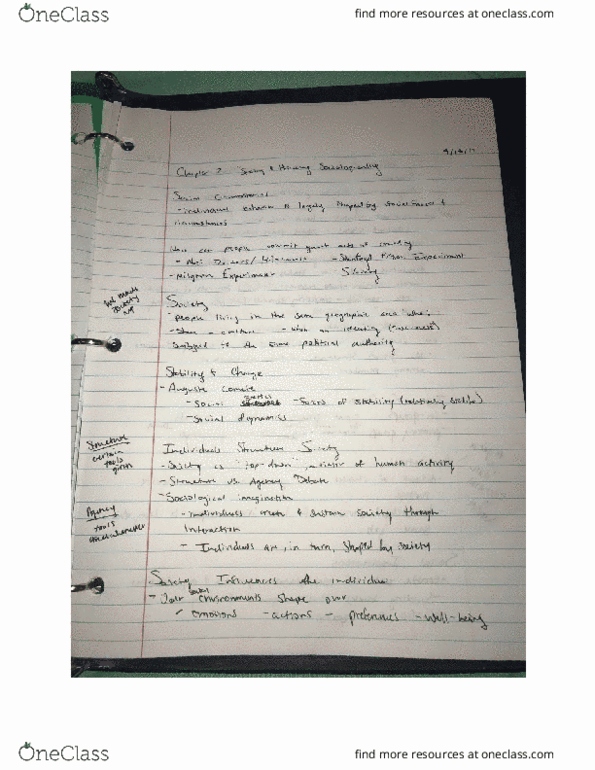 OneClass
find more resources at oneclass.com
Chapter 2 Seeing & Thinking Sociologically
Social
- individual behavior is largely shaped by social forces &
circumstances
How can people commit great acts of
- Stanford Prison Experiment
- Milgram Experiment
Society
Society
- people living in the same geographic area who:
- Share a culture
Subject to the same political authority
Stability & Change
- Auguste Comte
- Social Statics - Forces of stability (relatively stable)
- Social dynamics
Structure
certain
tools
given
Individuals Structure Society
- Society is "top-down" of human activity
- Structure vs Agency Debate
- Sociological imagination
Agency
tools
- individuals create & sustain society through
Interaction
- Individuals are, in turn, shaped by society
Society Influences the individual
- Our social environments shape our
- emotions - actions - preferences - well-being
OneClass
find more resources at oneclass.com